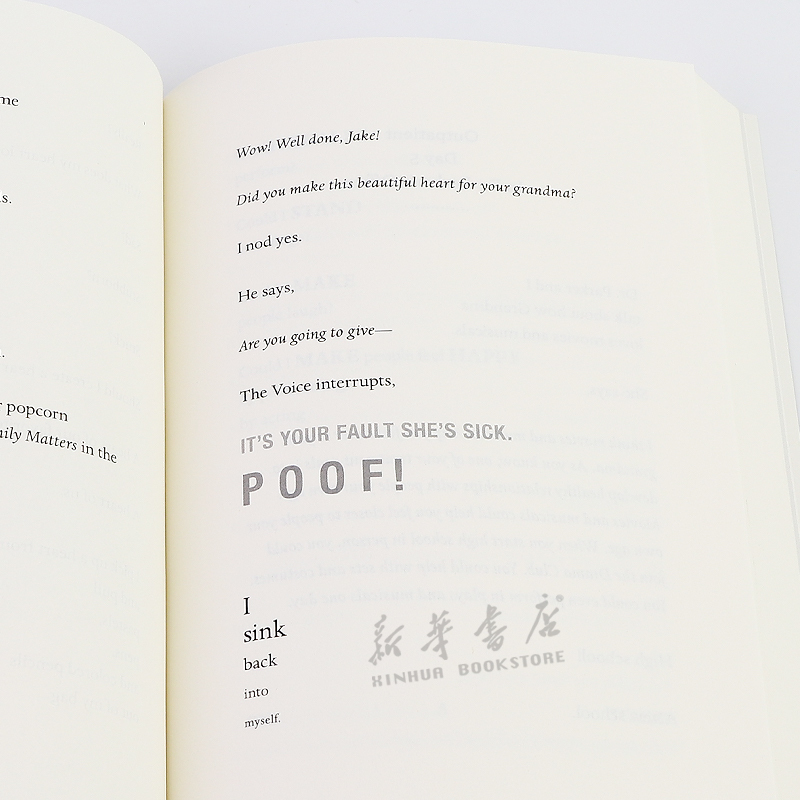 me
s.
.
popcorn
ily Matters in the
Wow! Well done, Jake!
Did you make this beautiful heart for your grandma?
I nod yes.
He says,
Are you going to give—
The Voice interrupts,
IT'S YOUR FAULT SHE'S SICK.
POOF!
I
sink
back
into
myself.
新华书店
XINHUA BOOKSTORE